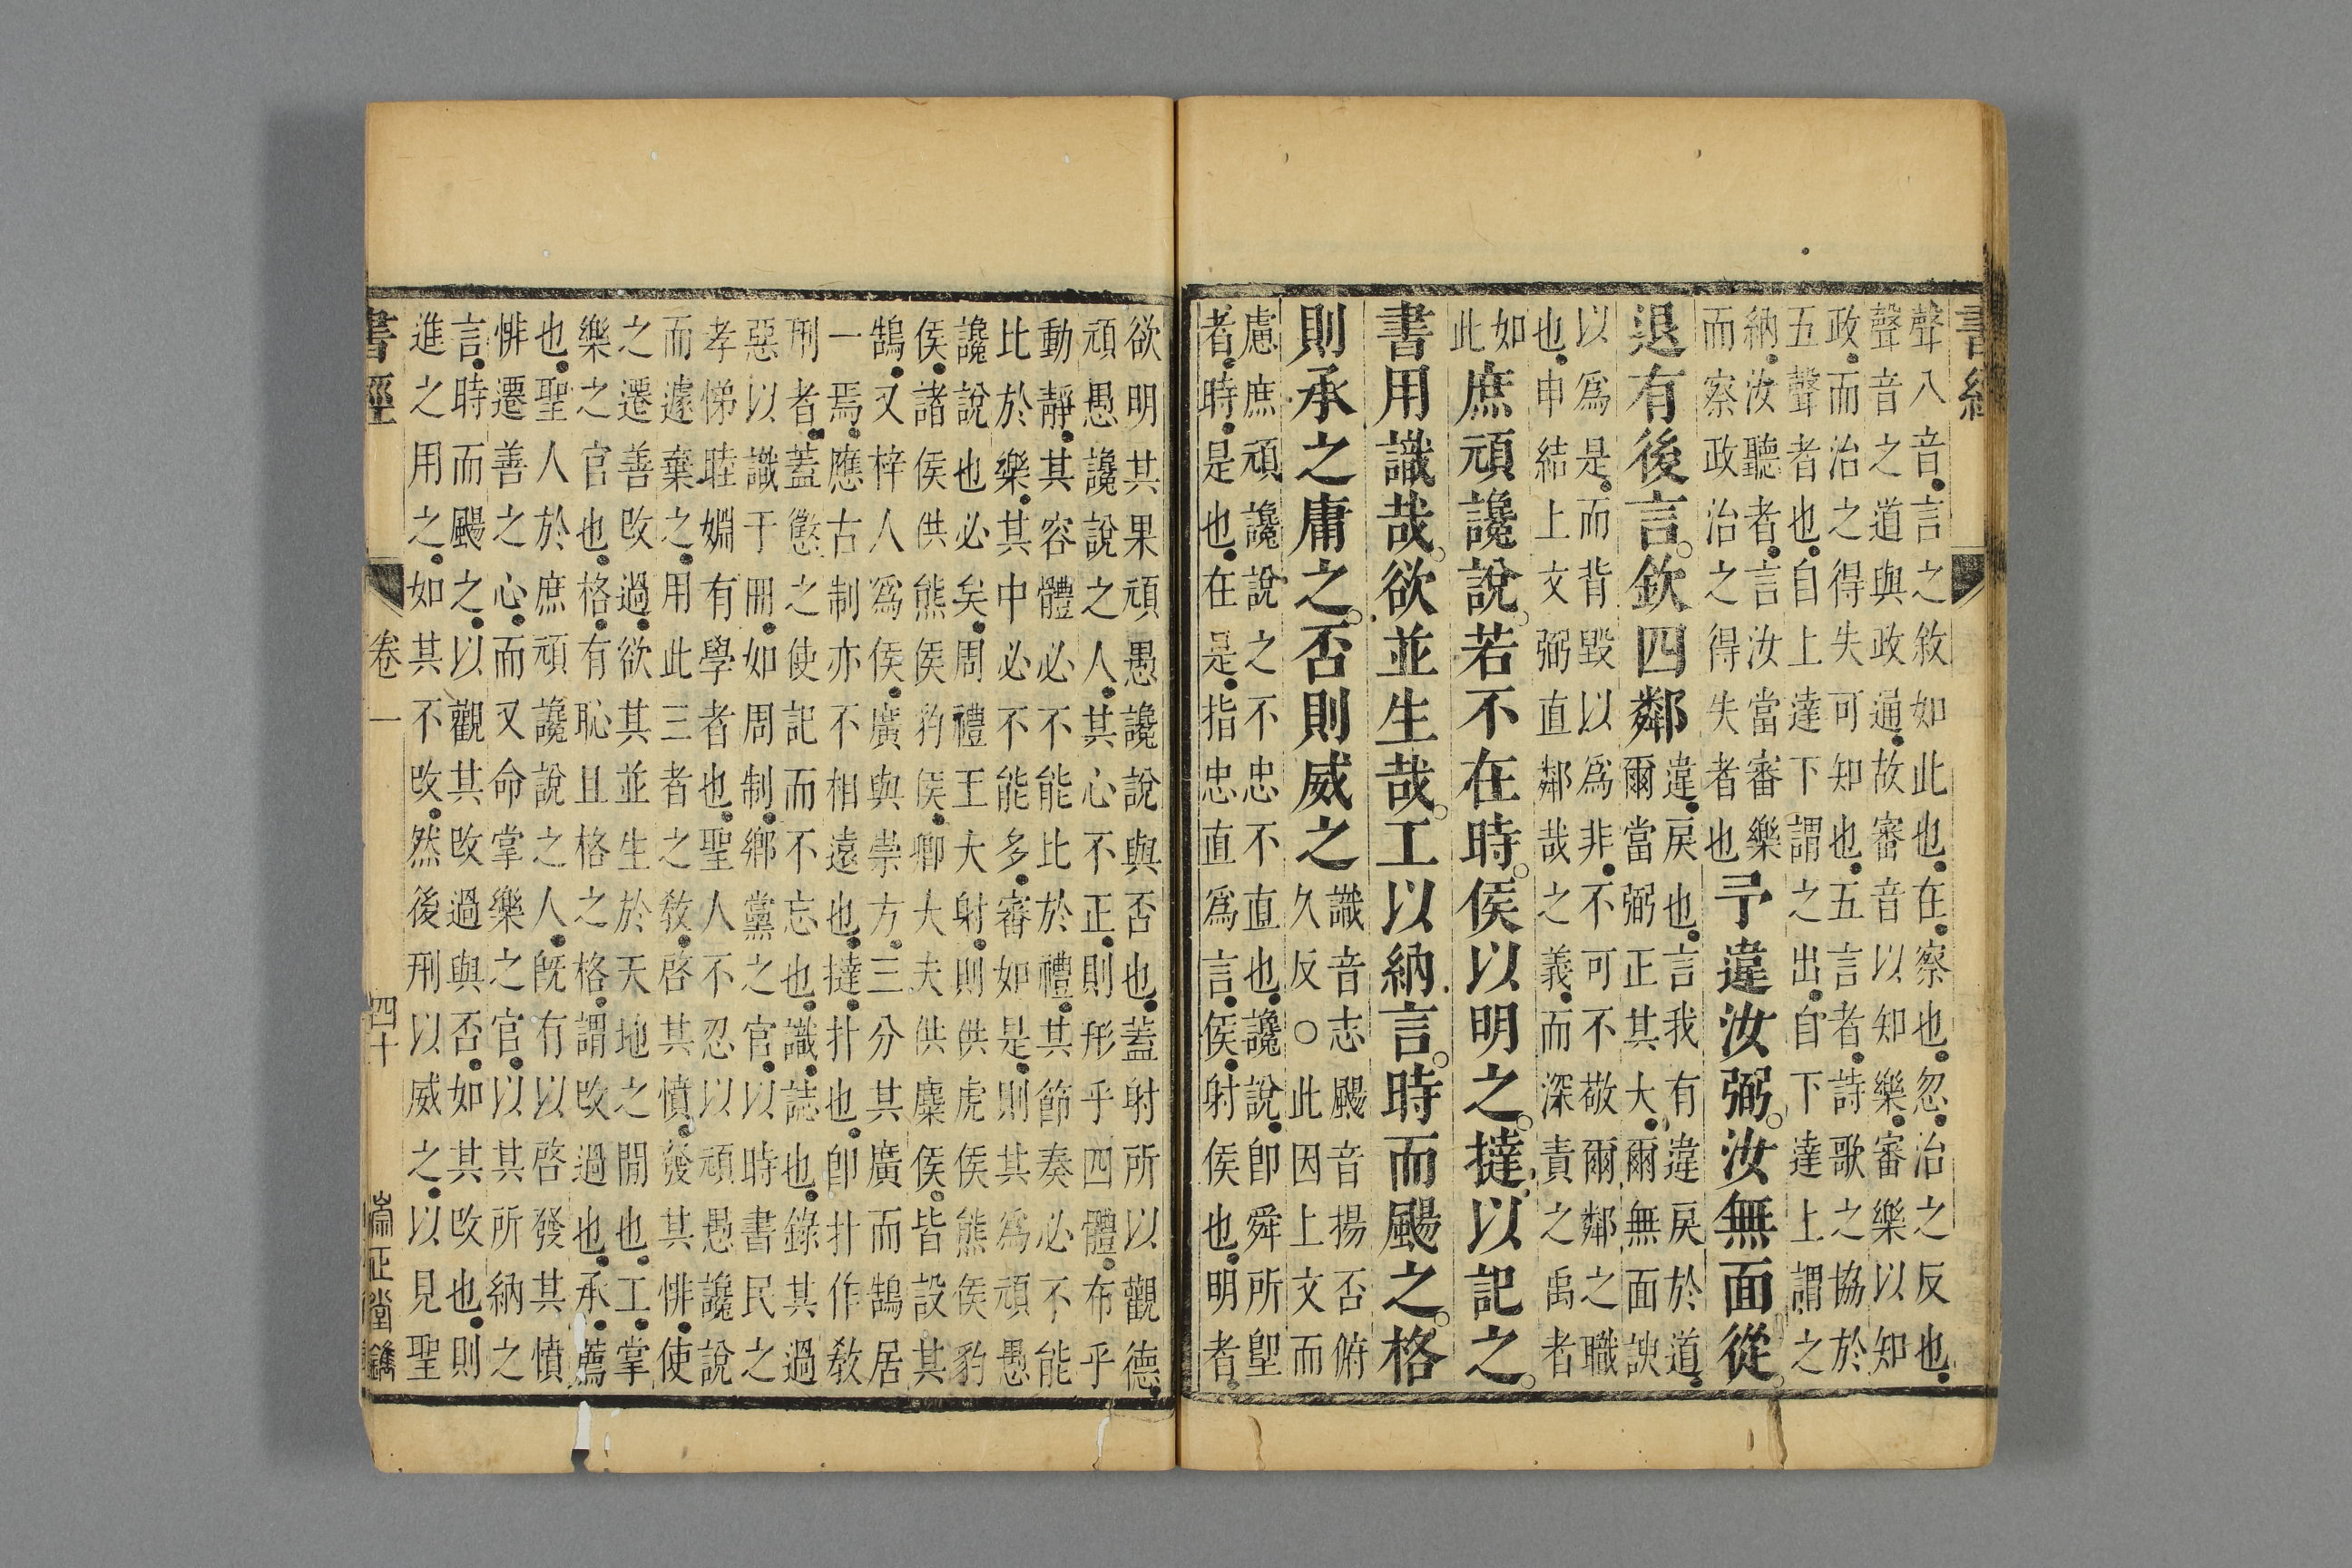 書經
聲八音言之敘如此也在察也忽治之反也
聲音之道與政通故審音以知樂審樂以知
政而治之得失可知也五言者詩歌之協於
五聲者也自上達下謂之出自下達上謂之
納汝聽者言汝當審樂
而察政治之得失者也
予違汝弼汝無面從
退有後言欽四鄰
違戾也言我有違戾於道
爾當弼正其大爾無面諛
以爲是而背毀以爲非不可不敬爾鄰之職
也申結上文弼直鄰哉之義而深責之禹者
如
此
庶頑讒說若不在時侯以明之撻以記之
書用識哉欲並生哉工以納言時而颺之格
則承之庸之否則威之
識音志颺音揚否俯
久反○此因上文而
慮庶頑讒說之不忠不直也讒說即舜所堲
者時是也在是指忠直爲言侯射侯也明者
欲明其果頑愚讒說與否也蓋射所以觀德
頑愚讒說之人其心不正則形乎四體布乎
動靜其容體必不能比於禮其節奏必不能
比於樂其中必不能多審如是則其爲頑愚
讒說也必矣周禮王大射則供虎侯熊侯豹
侯諸侯供熊侯豹侯卿大夫供麋侯皆設其
鵠又梓人爲侯廣與崇方三分其廣而鵠居
一焉應古制亦不相遠也撻扑也即扑作敎
刑者蓋懲之使記而不忘也識誌也錄其過
惡以識于冊如周制鄉黨之官以時書民之
孝悌睦婣有學者也聖人不忍以頑愚讒說
而遽棄之用此三者之敎啓其憤發其悱使
之遷善改過欲其並生於天地之閒也工掌
樂之官也格有恥且格之格謂改過也承薦
也聖人於庶頑讒說之人既有以啓發其憤
悱遷善之心而又命掌樂之官以其所納之
言時而颺之以觀其改過與否如其改也則
進之用之如其不改然後刑以威之以見聖
書經 卷一 四十 崇正堂鐫